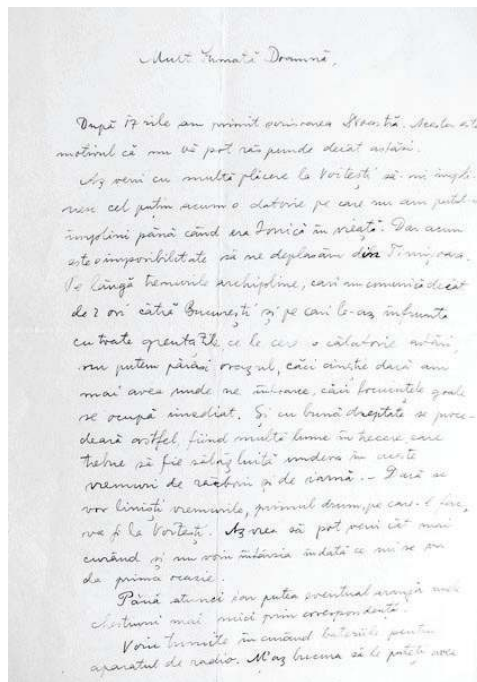 Mult Stimată Doamnă,
După 17 zile am primit scrisoarea Dvoastră. Acesta este
motivul că nu vă pot răspunde decât astăzi.
Aș veni cu multă plăcere la Voitești să-mi împli-
nesc cel puțin acum o datorie pe care nu am putut-o
împlini până când era Ionică în vieață. Dar acum
este o imposibilitate să ne deplasăm din Timișoara.
Pe lângă trenurile arhipline, cari nu comunică decât
de 2 ori către București și pe cari le-aș înfrunta
cu toate greutățile ce le cere o călătorie astăzi,
nu putem părăsi orașul, căci cine știe dacă am
mai avea unde ne întoarce, căci locuințele goale
se ocupă imediat. Și cu bună dreptate se proce-
dează astfel, fiind multă lume în trecere care
trebue să fie sălășluită undeva în aceste
vremuri de război și de iarnă. – Dacă se
vor liniști vremurile, primul drum, pe care-l fac,
va fi la Voitești. Aș vrea să pot veni cât mai
curând și nu voiu întârzia îndată ce mi se va
da prima ocazie.
Până atunci am putea eventual aranja unele
chestiuni mai mici prin corespondență.
Voiu trimite în curând bateriile pentru
aparatul de radio. M'aș bucura să le puteți avea